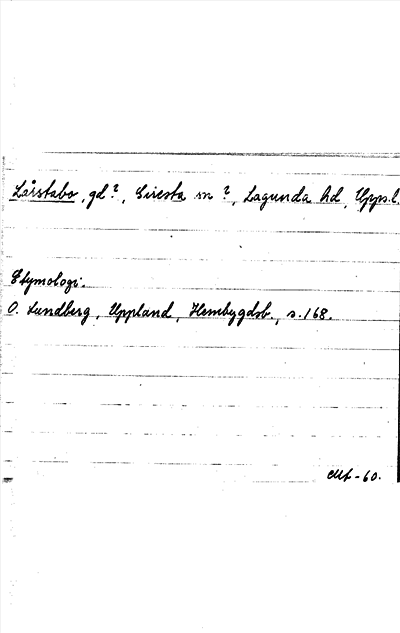 Lårstabo, gd?, Giresta sn?, Lagunda hd, Upps. l.
Etymologi.
O. Lundberg, Uppland, Hembygdsb., s. 168.
-60.